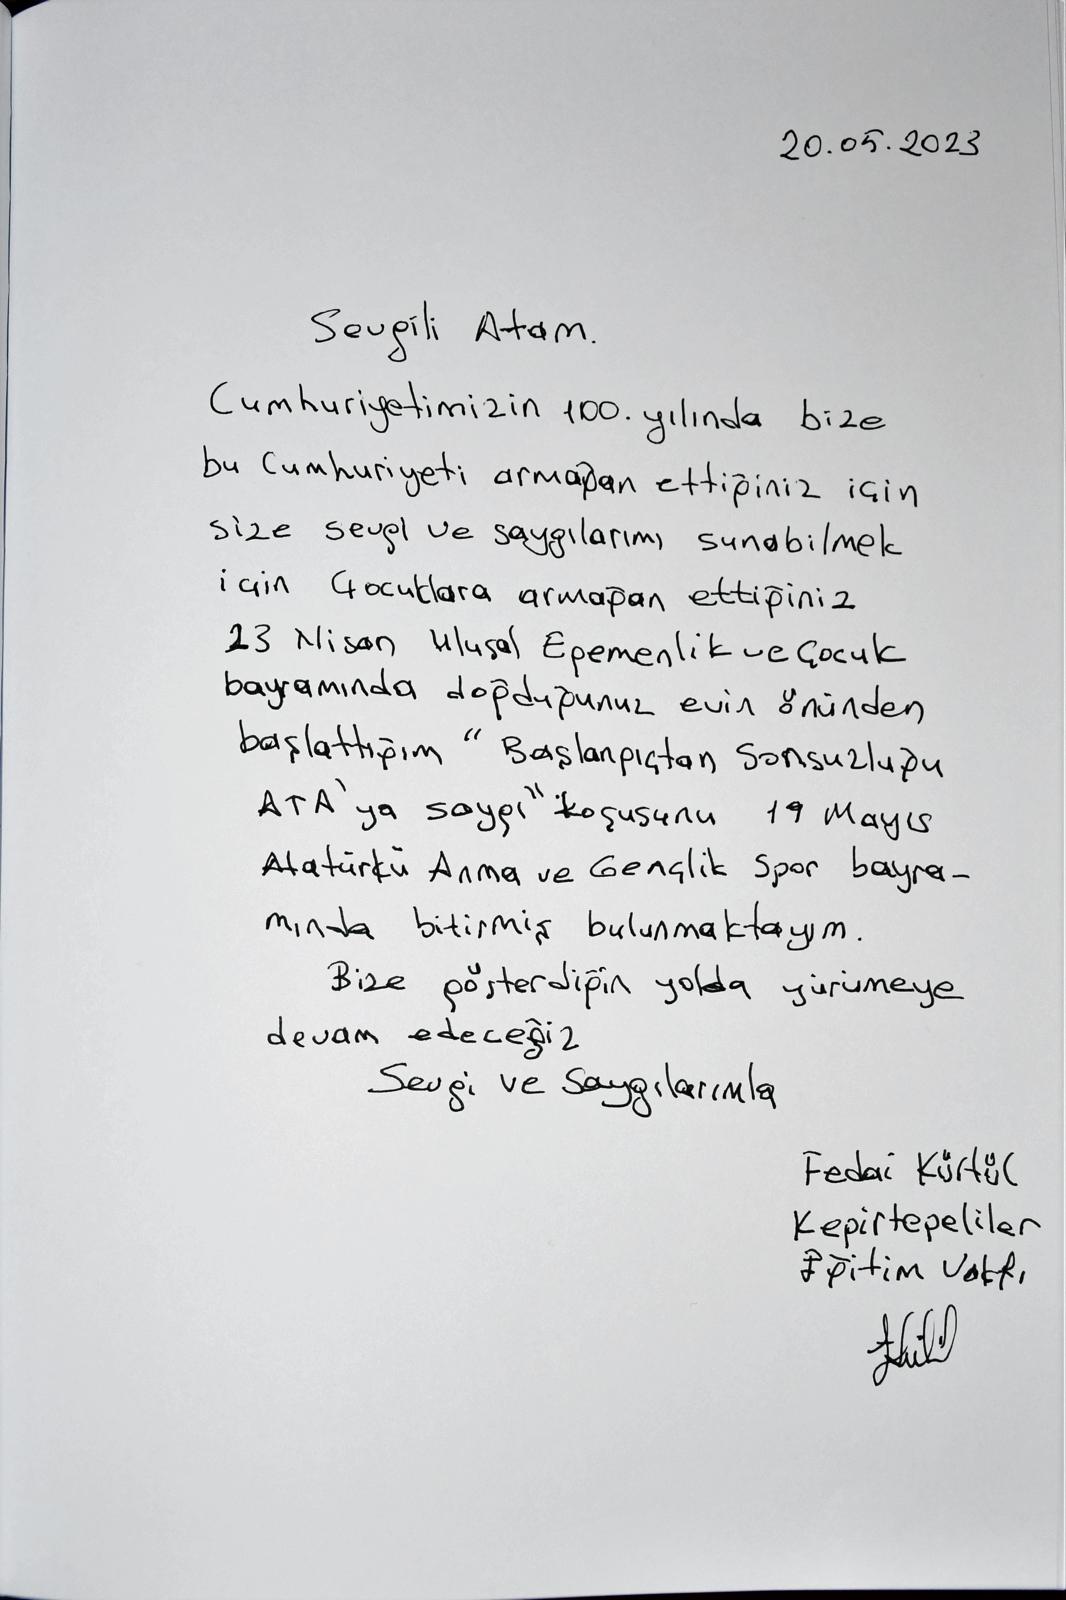 20.05.2023
Sevgili Atam.
Cumhuriyetimizin 100. yılında bize
bu Cumhuriyeti armağan ettiğiniz için
size sevgi ve saygılarımı sunabilmek
için Çocuklara armağan ettiğiniz
23 Nisan Ulusal Egemenlik ve Çocuk
bayramında doğduğunuz evin önünden
başlattığım " Başlangıçtan Sonsuzluğu
ATA'ya saygı" koşusunu 19 Mayıs
Atatürkü Anma ve Gençlik Spor bayra-
mında bitirmiş bulunmaktayım.
Bize gösterdiğin yolda yürümeye
devam edeceğiz
Sevgi ve Saygılarımla
Fedai Kürtül
Kepirtepeliler
Eğitim Vakfı